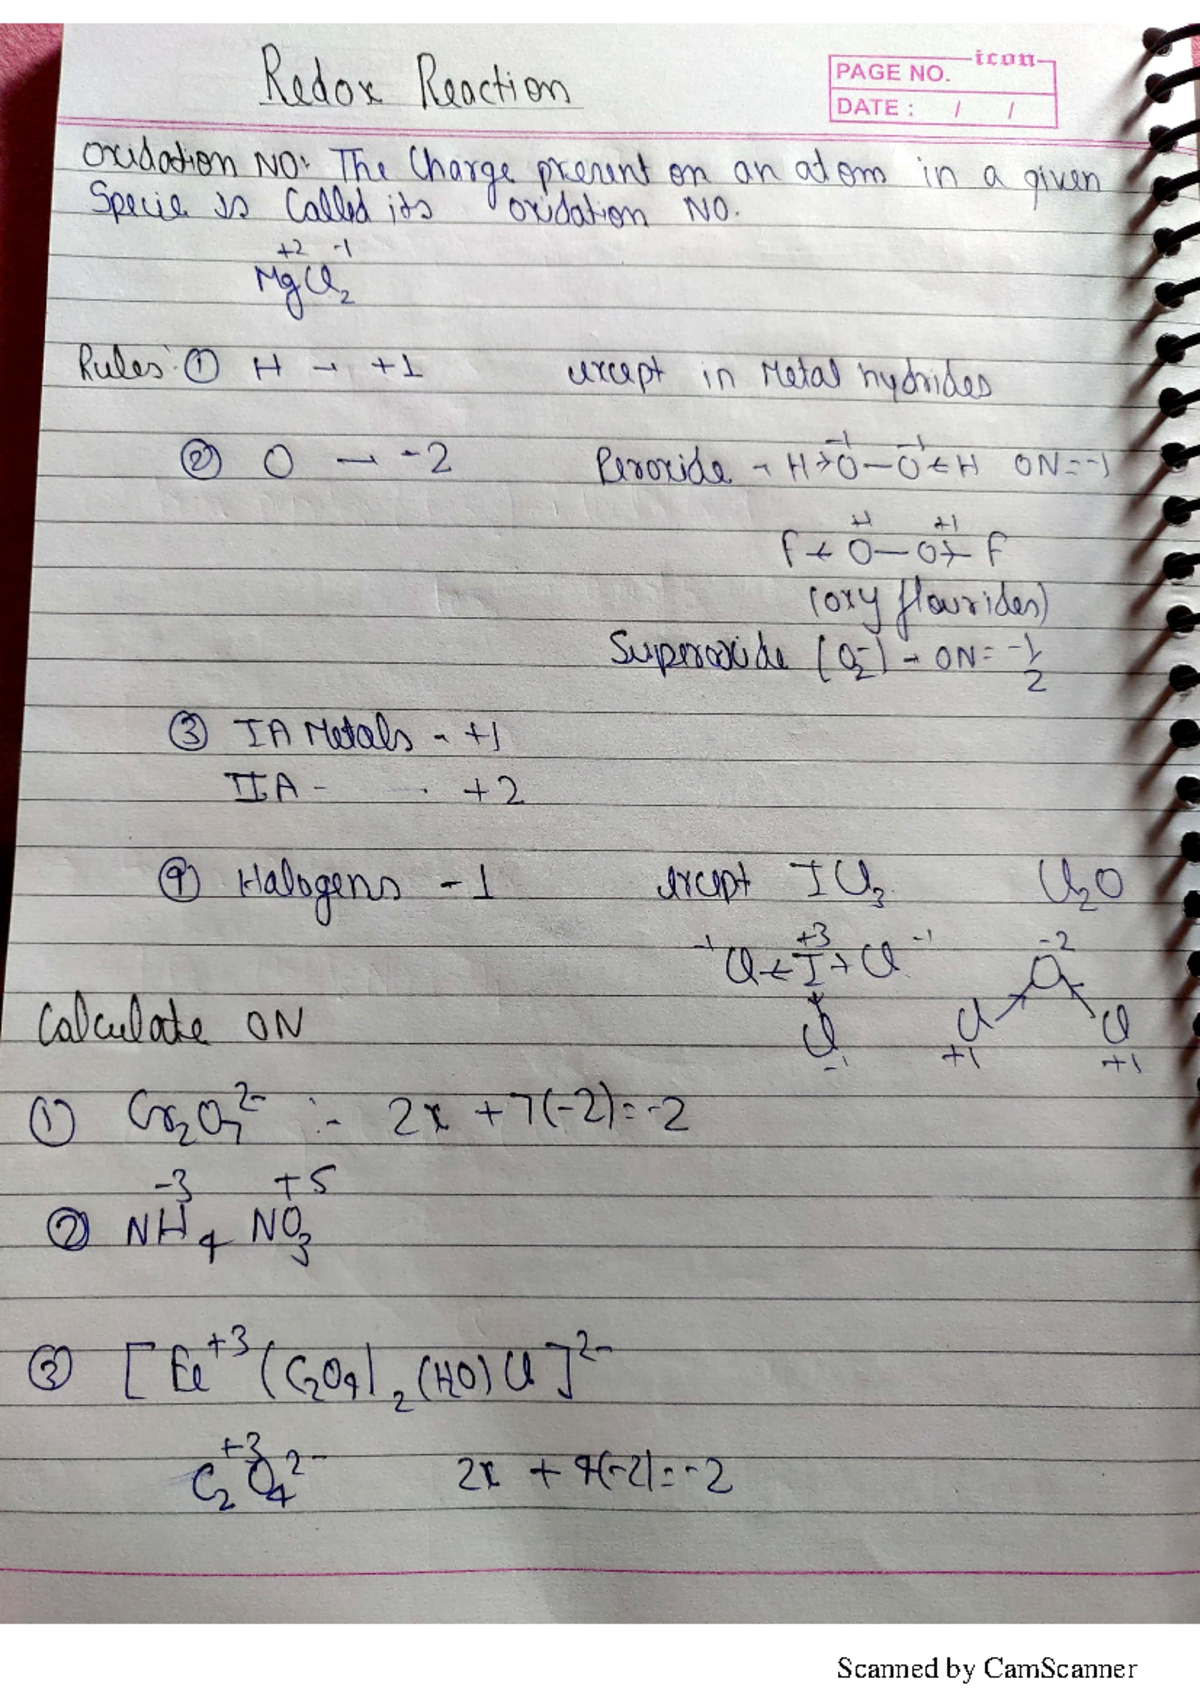 Redox Reaction
icon
PAGE NO.
DATE : / /
Oxidation NO: The Charge present on an atom in a given
Specie is Called its oxidation NO.
+2 -1
MgCl₂
Rules: ① H → +1 except in Metal hydrides
② O → -2 Peroxide → H→O—O←H ON=-1
-1 -1
F←O—O→F
+1 +1
(oxy flourides)
Superoxide (O₂⁻) → ON= -1/2
③ IA Metals - +1
IIA - +2
④ Halogens -1 except ICl₃ Cl₂O
-1 Cl←I→Cl -1 +3 -2 O
Cl -1 Cl +1 Cl +1
Calculate ON
① Cr₂O₇²⁻ :- 2x + 7(-2)=-2
-3 +5
② NH₄ NO₃
③ [Fe⁺³(C₂O₄)₂(H₂O)Cl]²⁻
+3
C₂O₄²⁻ 2x + 4(-2)=-2
Scanned by CamScanner